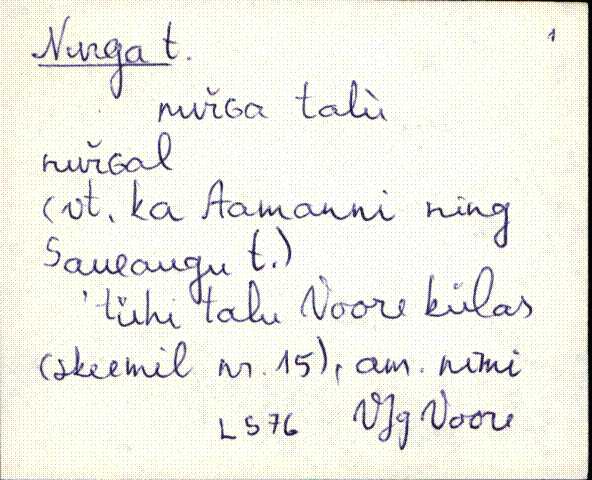 1
Nurga t.
nuřGa talù
nuřGal
(vt. ka Aamanni ning
Saueaugu t.)
'tühi talu Voore külas
(skeemil nr. 15), am. nimi
LS76 VJg Voore